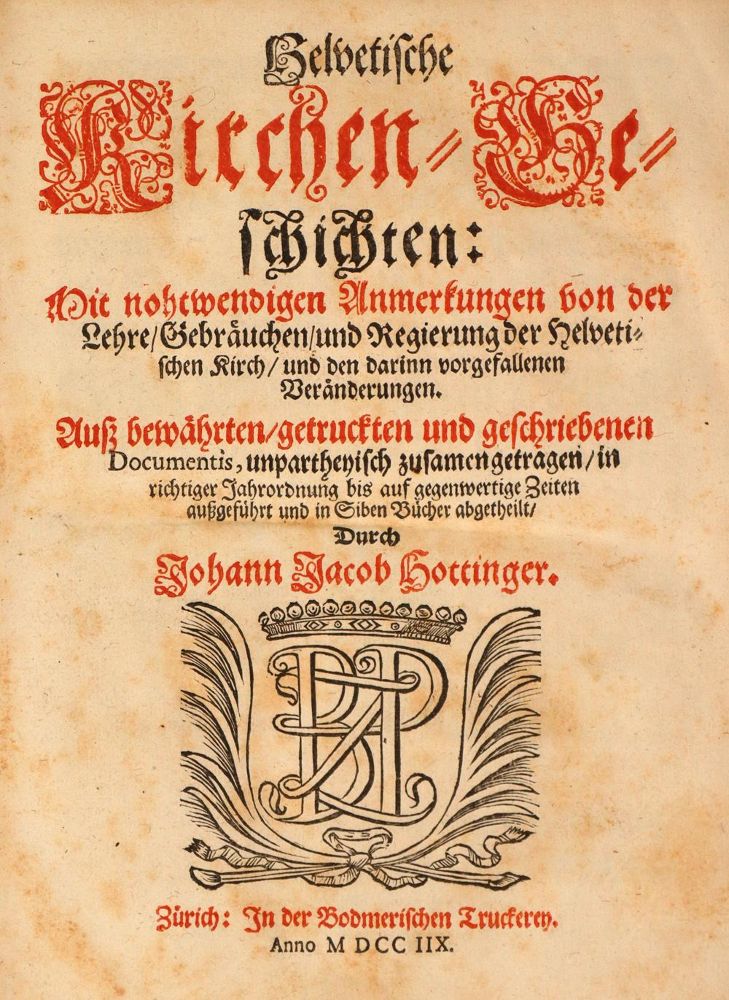 Helvetische
Kirchen-Ge-
schichten:
Mit nohtwendigen Anmerkungen von der
Lehre/Gebräuchen/und Regierung der Helveti-
schen Kirch/ und den darinn vorgefallenen
Veränderungen.
Auß bewährten/getruckten und geschriebenen
Documentis, unpartheyisch zusamengetragen/in
richtiger Jahrordnung bis auf gegenwertige Zeiten
außgeführt und in Siben Bücher abgetheilt/
Durch
Johann Jacob Hottinger.
Zürich: In der Bodmerischen Truckerey.
Anno M DCC IIX.